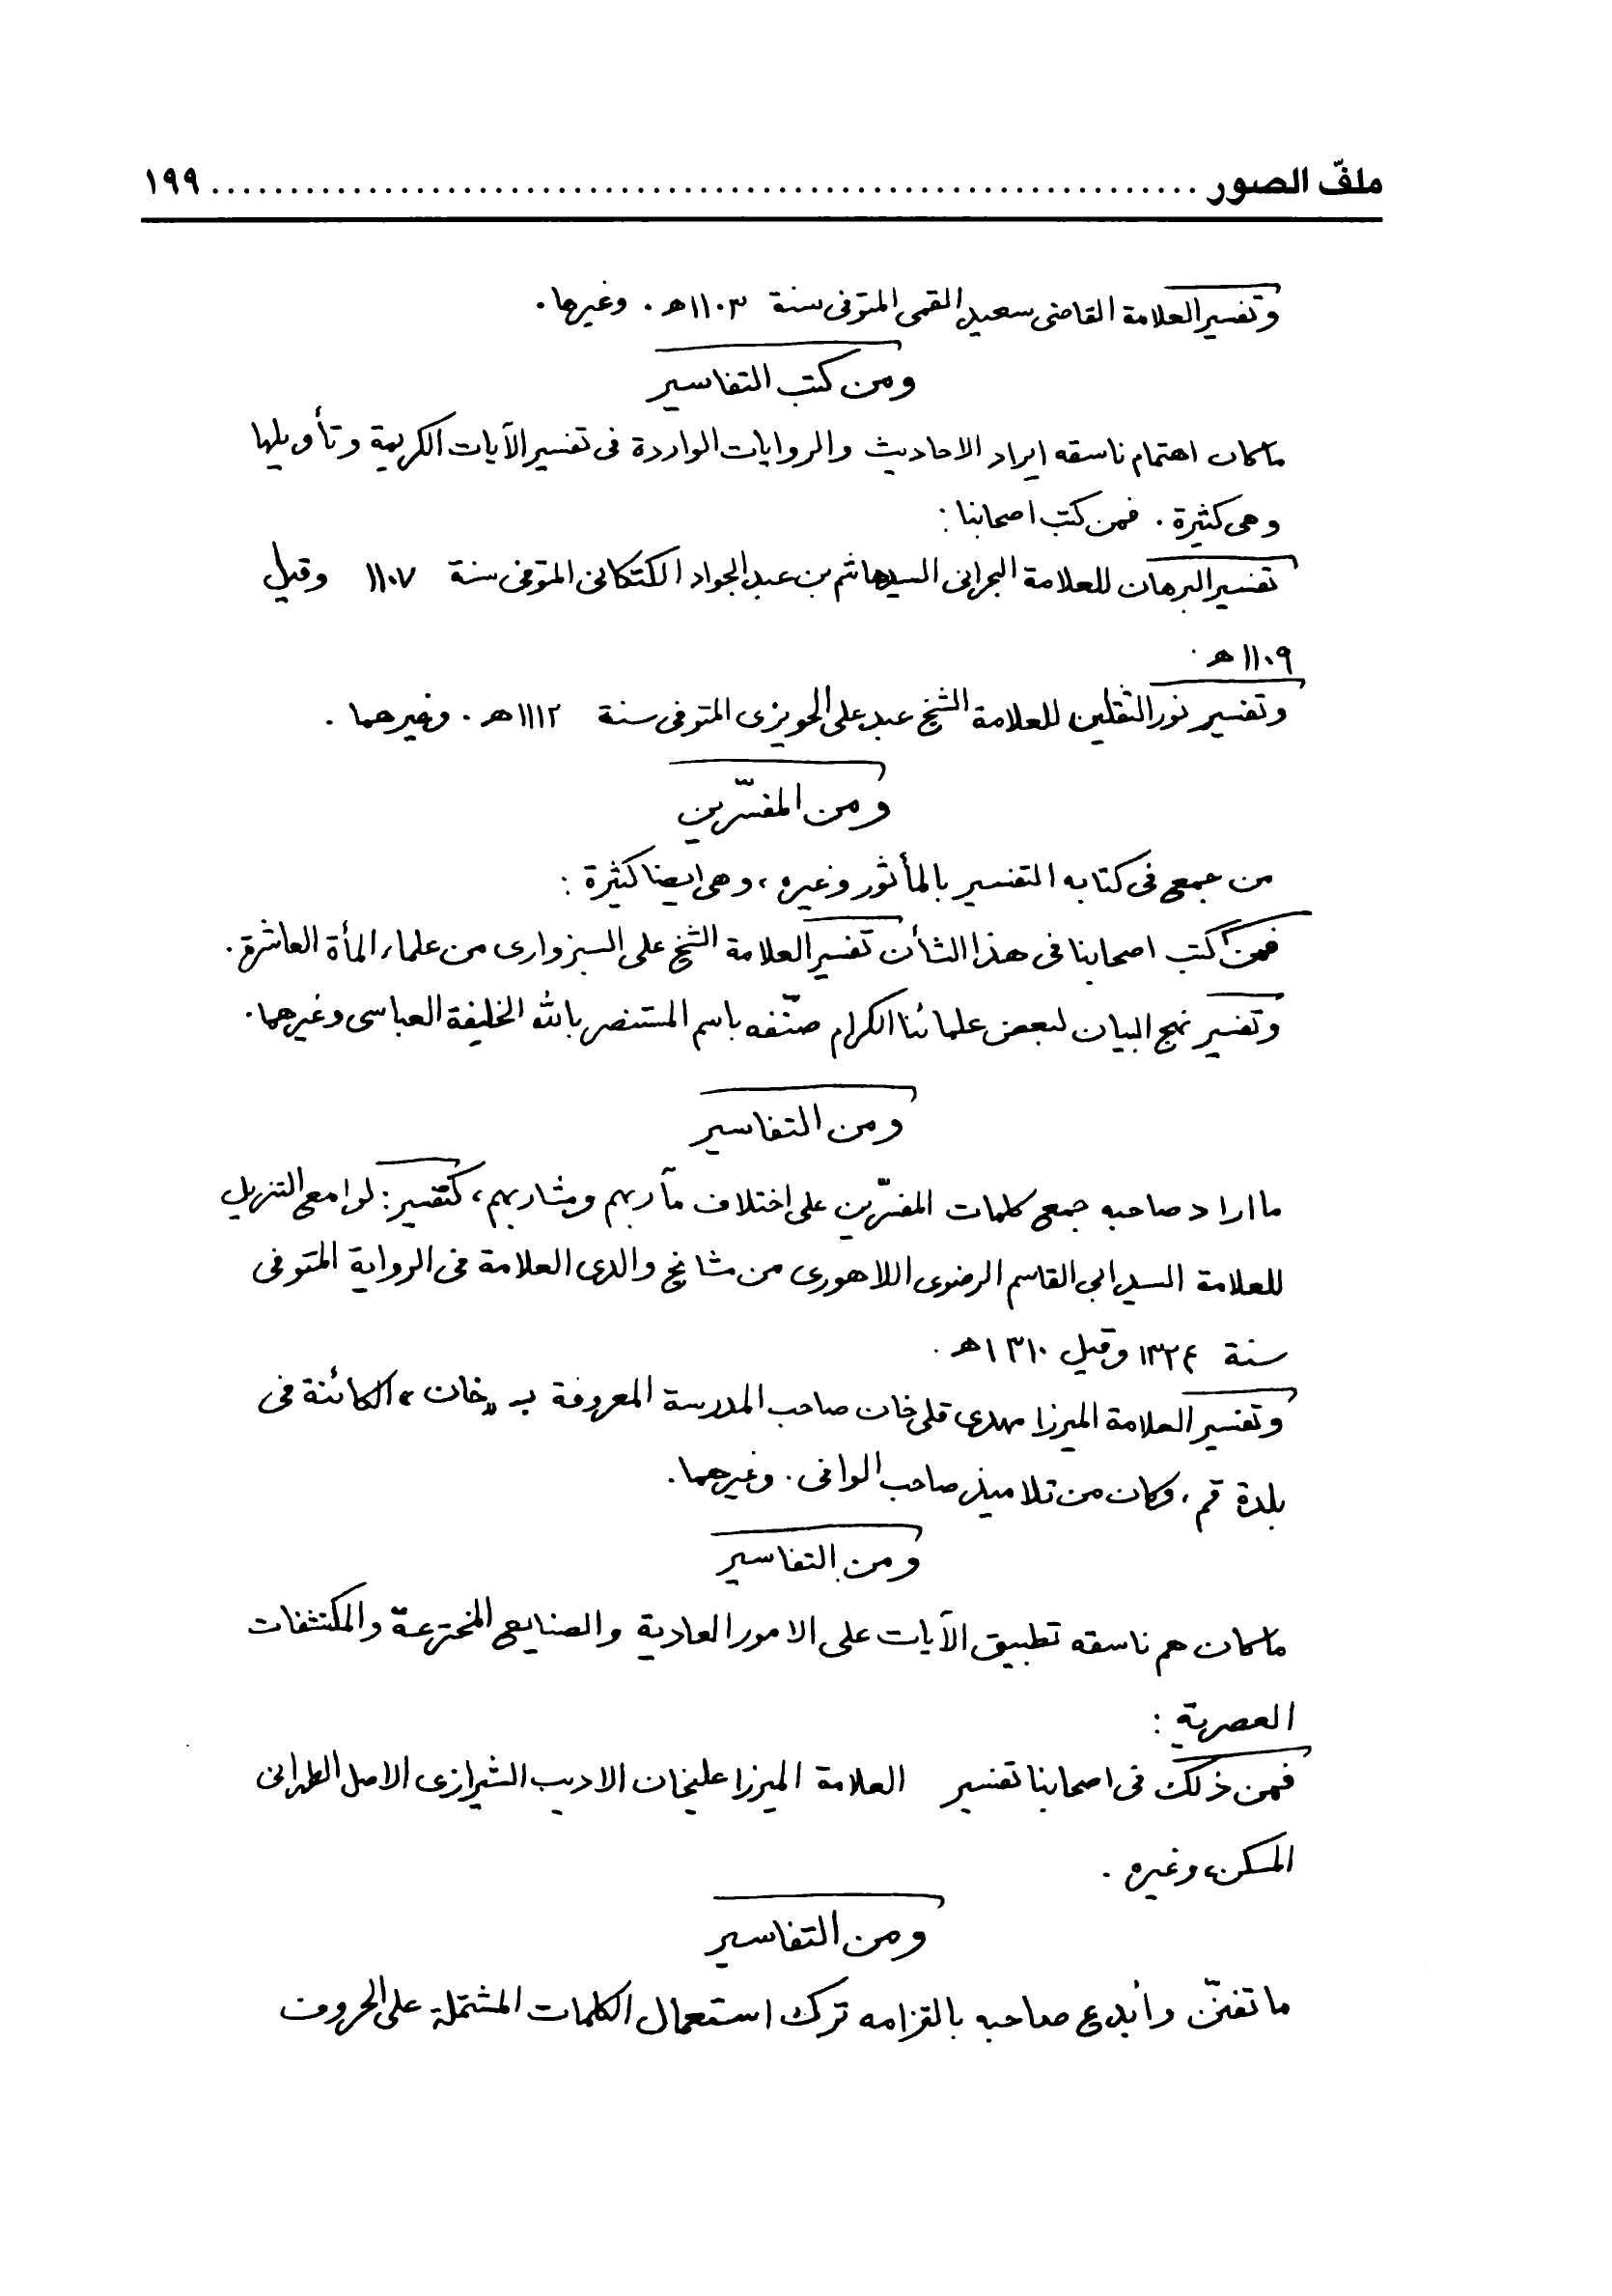 ملفّ الصور ............................................................ ١٩٩
وتفسير العلامة القاضى سعيد القمى المتوفى سنة ١١٠٣ هـ . وغيرها .
ومن كتب التفاسير
ما كان اهتمام ناسقه ايراد الاحاديث والروايات الواردة فى تفسير الآيات الكريمة وتأويلها
وهى كثيرة . فمن كتب اصحابنا :
تفسير البرهان للعلامة البحرانى السيد هاشم بن عبد الجواد الكتكانى المتوفى سنة ١١٠٧ وقيل
١١٠٩ هـ .
وتفسير نور الثقلين للعلامة الشيخ عبد على الحويزى المتوفى سنة ١١١٢ هـ . وغيرهما .
ومن المفسّرين
من جمع فى كتابه التفسير بالمأثور وغيره ، وهى ايضا كثيرة :
فمن كتب اصحابنا فى هذا الشأن تفسير العلامة الشيخ على السبزوارى من علماء المأة العاشرة .
وتفسير نهج البيان لبعض علمائنا الكرام صنّفه باسم المستنصر بالله الخليفة العباسى وغيرهما .
ومن التفاسير
ما اراد صاحبه جمع كلمات المفسّرين على اختلاف مآربهم ومشاربهم ، كتفسير : لوامع التنزيل
للعلامة السيد ابى القاسم الرضوى اللاهورى من مشايخ والدى العلامة فى الرواية المتوفى
سنة ١٣٢٤ وقيل ١٣١٠ هـ .
وتفسير العلامة الميرزا مهدى قلى خان صاحب المدرسة المعروفة بـ «خان» الكائنة فى
بلدة قم ، وكان من تلاميذ صاحب الوافى . وغيرهما .
ومن التفاسير
ما كان هم ناسقه تطبيق الآيات على الامور العادية والصنايع المخترعة والمكتشفات
العصرية :
فمن ذلك فى اصحابنا تفسير العلامة الميرزا عليخان الاديب الشيرازى الاصل الطهرانى
المسكن ، وغيره .
ومن التفاسير
ما تفنّن وأبدع صاحبه بالتزامه ترك استعمال الكلمات المشتملة على الحروف